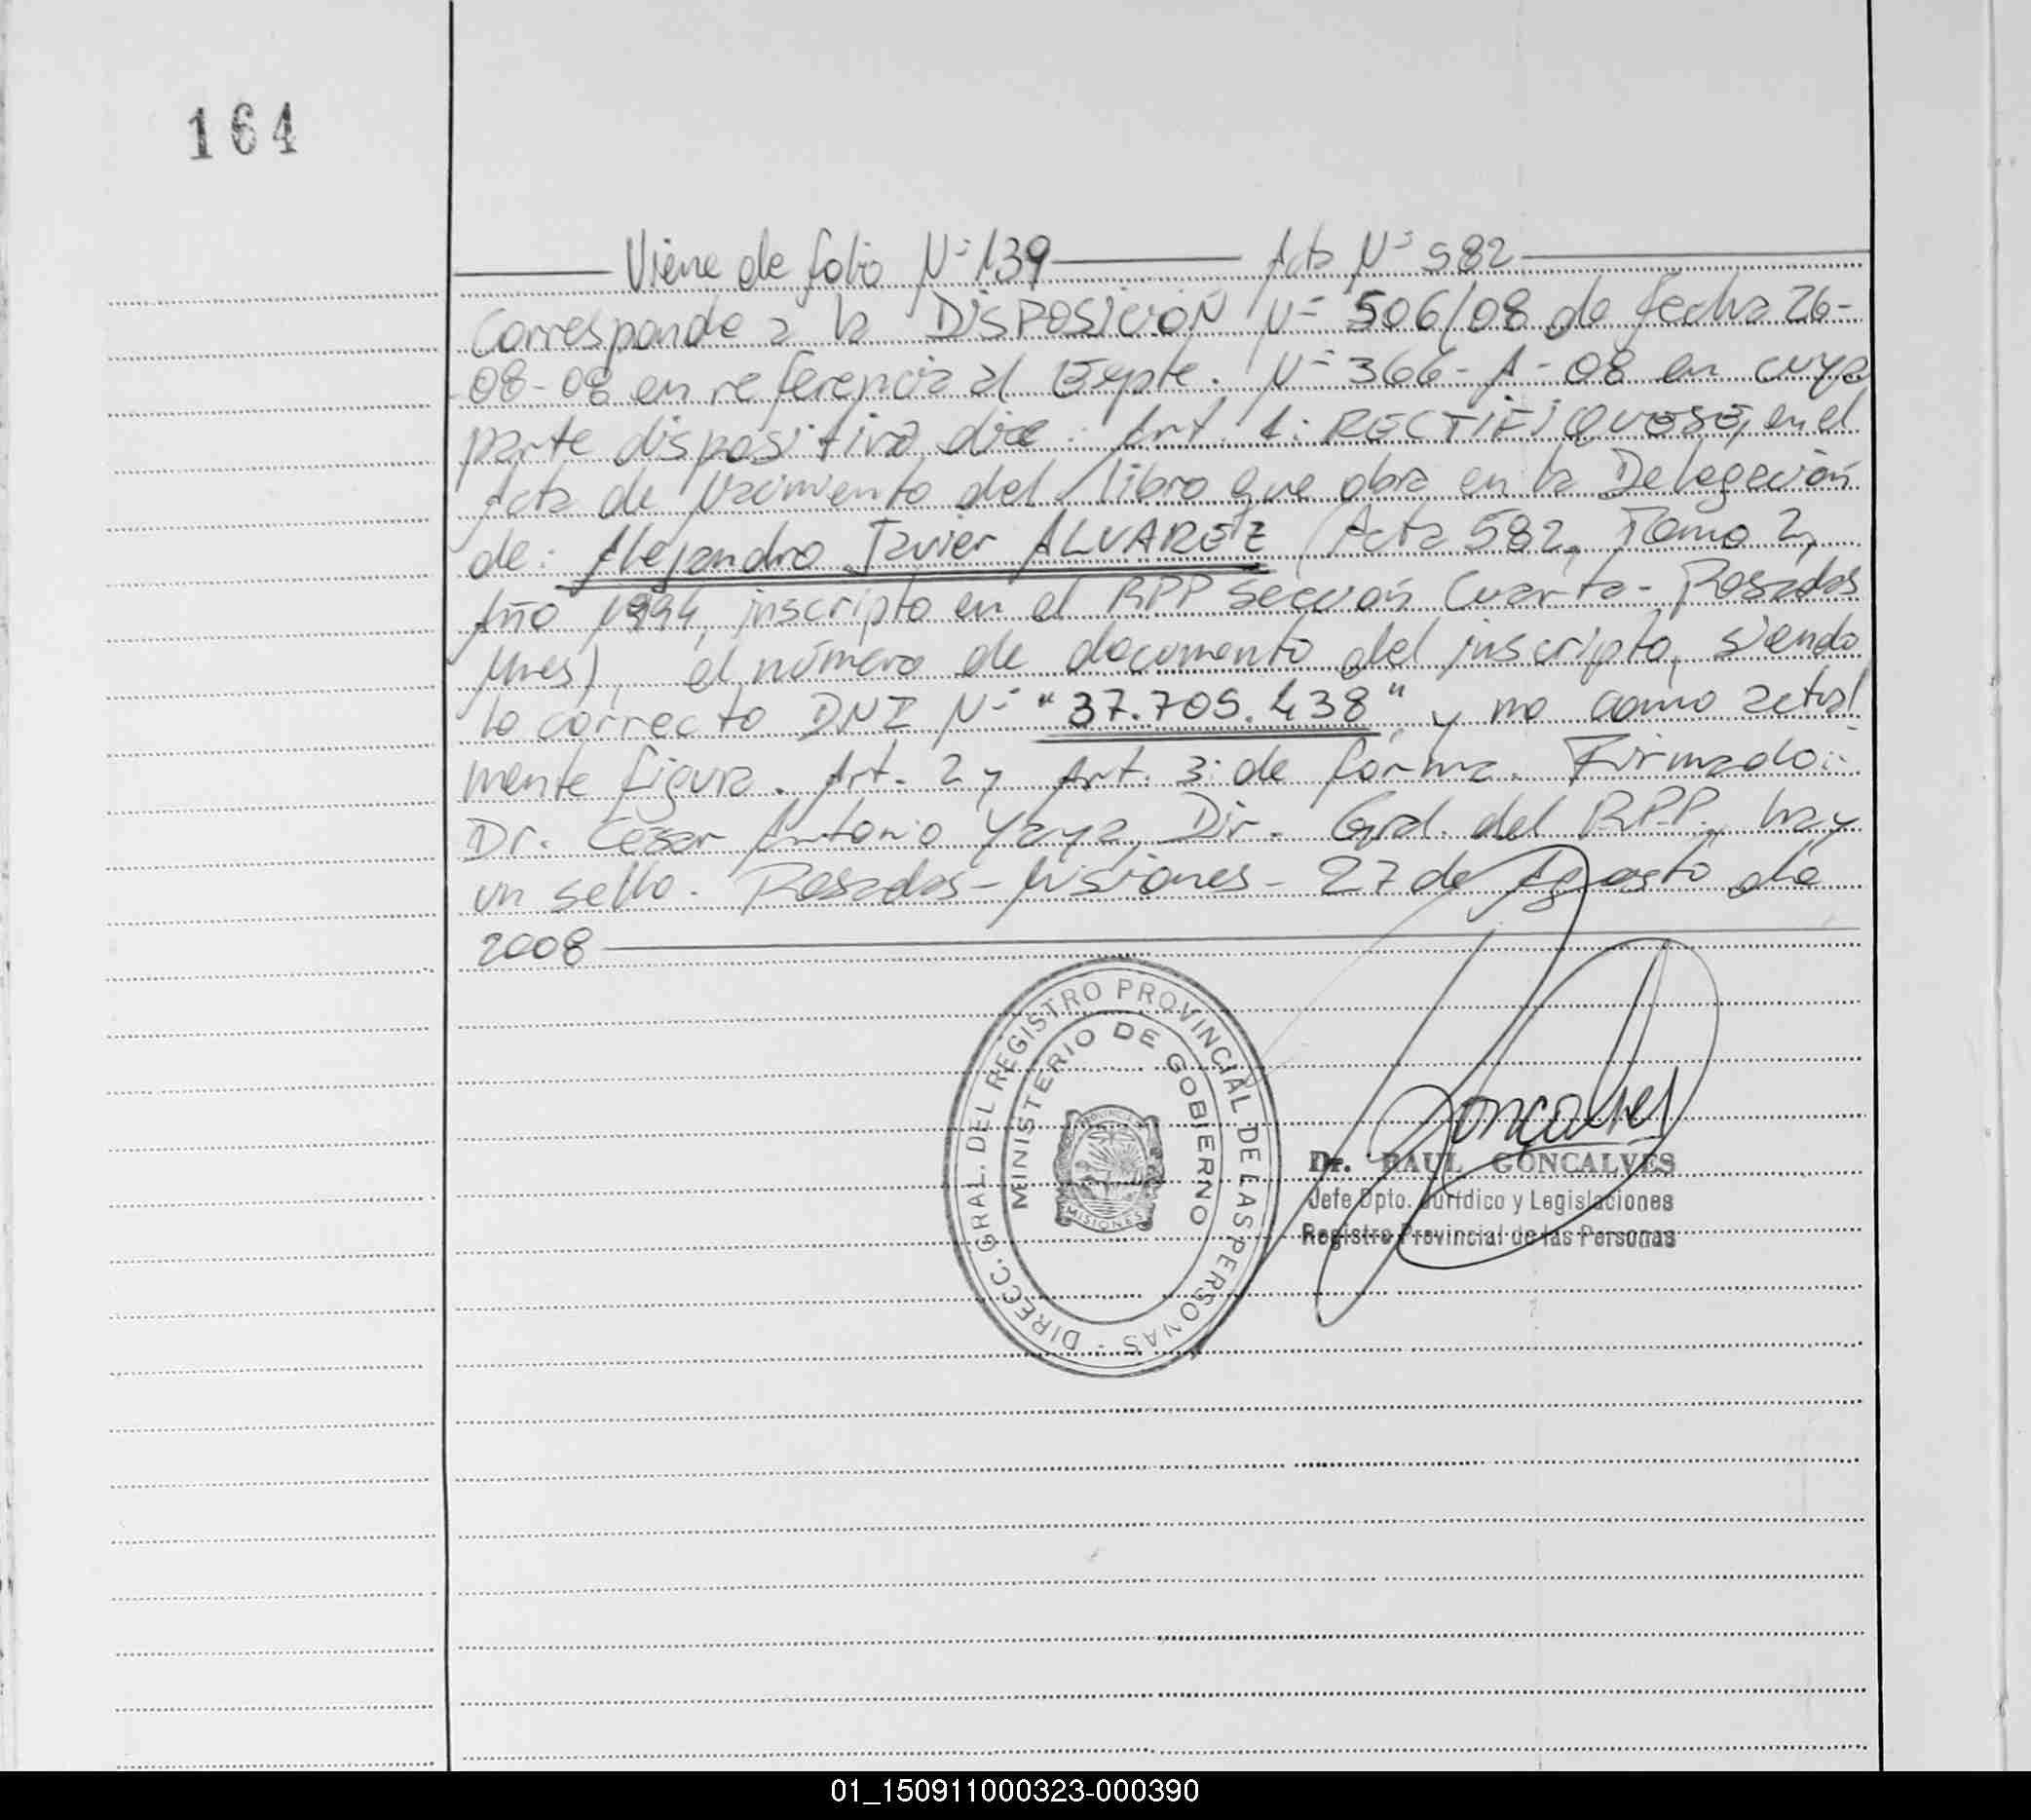 164
Viene de folio Nº 139 Acta Nº 582
Corresponde a la DISPOSICION Nº 506/08 de fecha 26-
08-08 en referencia al Expte. Nº 366-A-08 en cuya
parte dispositiva dice: Art. 1: RECTIFIQUESE, en el
Acta de Nacimiento del libro que obra en la Delegación
de: Alejandro Javier ALVAREZ (Acta 582, Tomo 2,
Año 1994, inscripto en el RPP sección Cuarta - Posadas
Mnes), el número de documento del inscripto, siendo
lo correcto DNI Nº "37.705.438" y no como actual
mente figura. Art. 2 y Art. 3: de forma. Firmado:
Dr. Cesar Antonio Yaya, Dir. Gral. del R.P.P., hay
un sello. Posadas - Misiones - 27 de Agosto de
2008
DIRECC. GRAL. DEL REGISTRO PROVINCIAL DE LAS PERSONAS -
MINISTERIO DE GOBIERNO
PROVINCIA
MISIONES
Goncalves
Dr. RAUL GONCALVES
Jefe Dpto. Jurídico y Legislaciones
Registro Provincial de las Personas
01_150911000323-000390